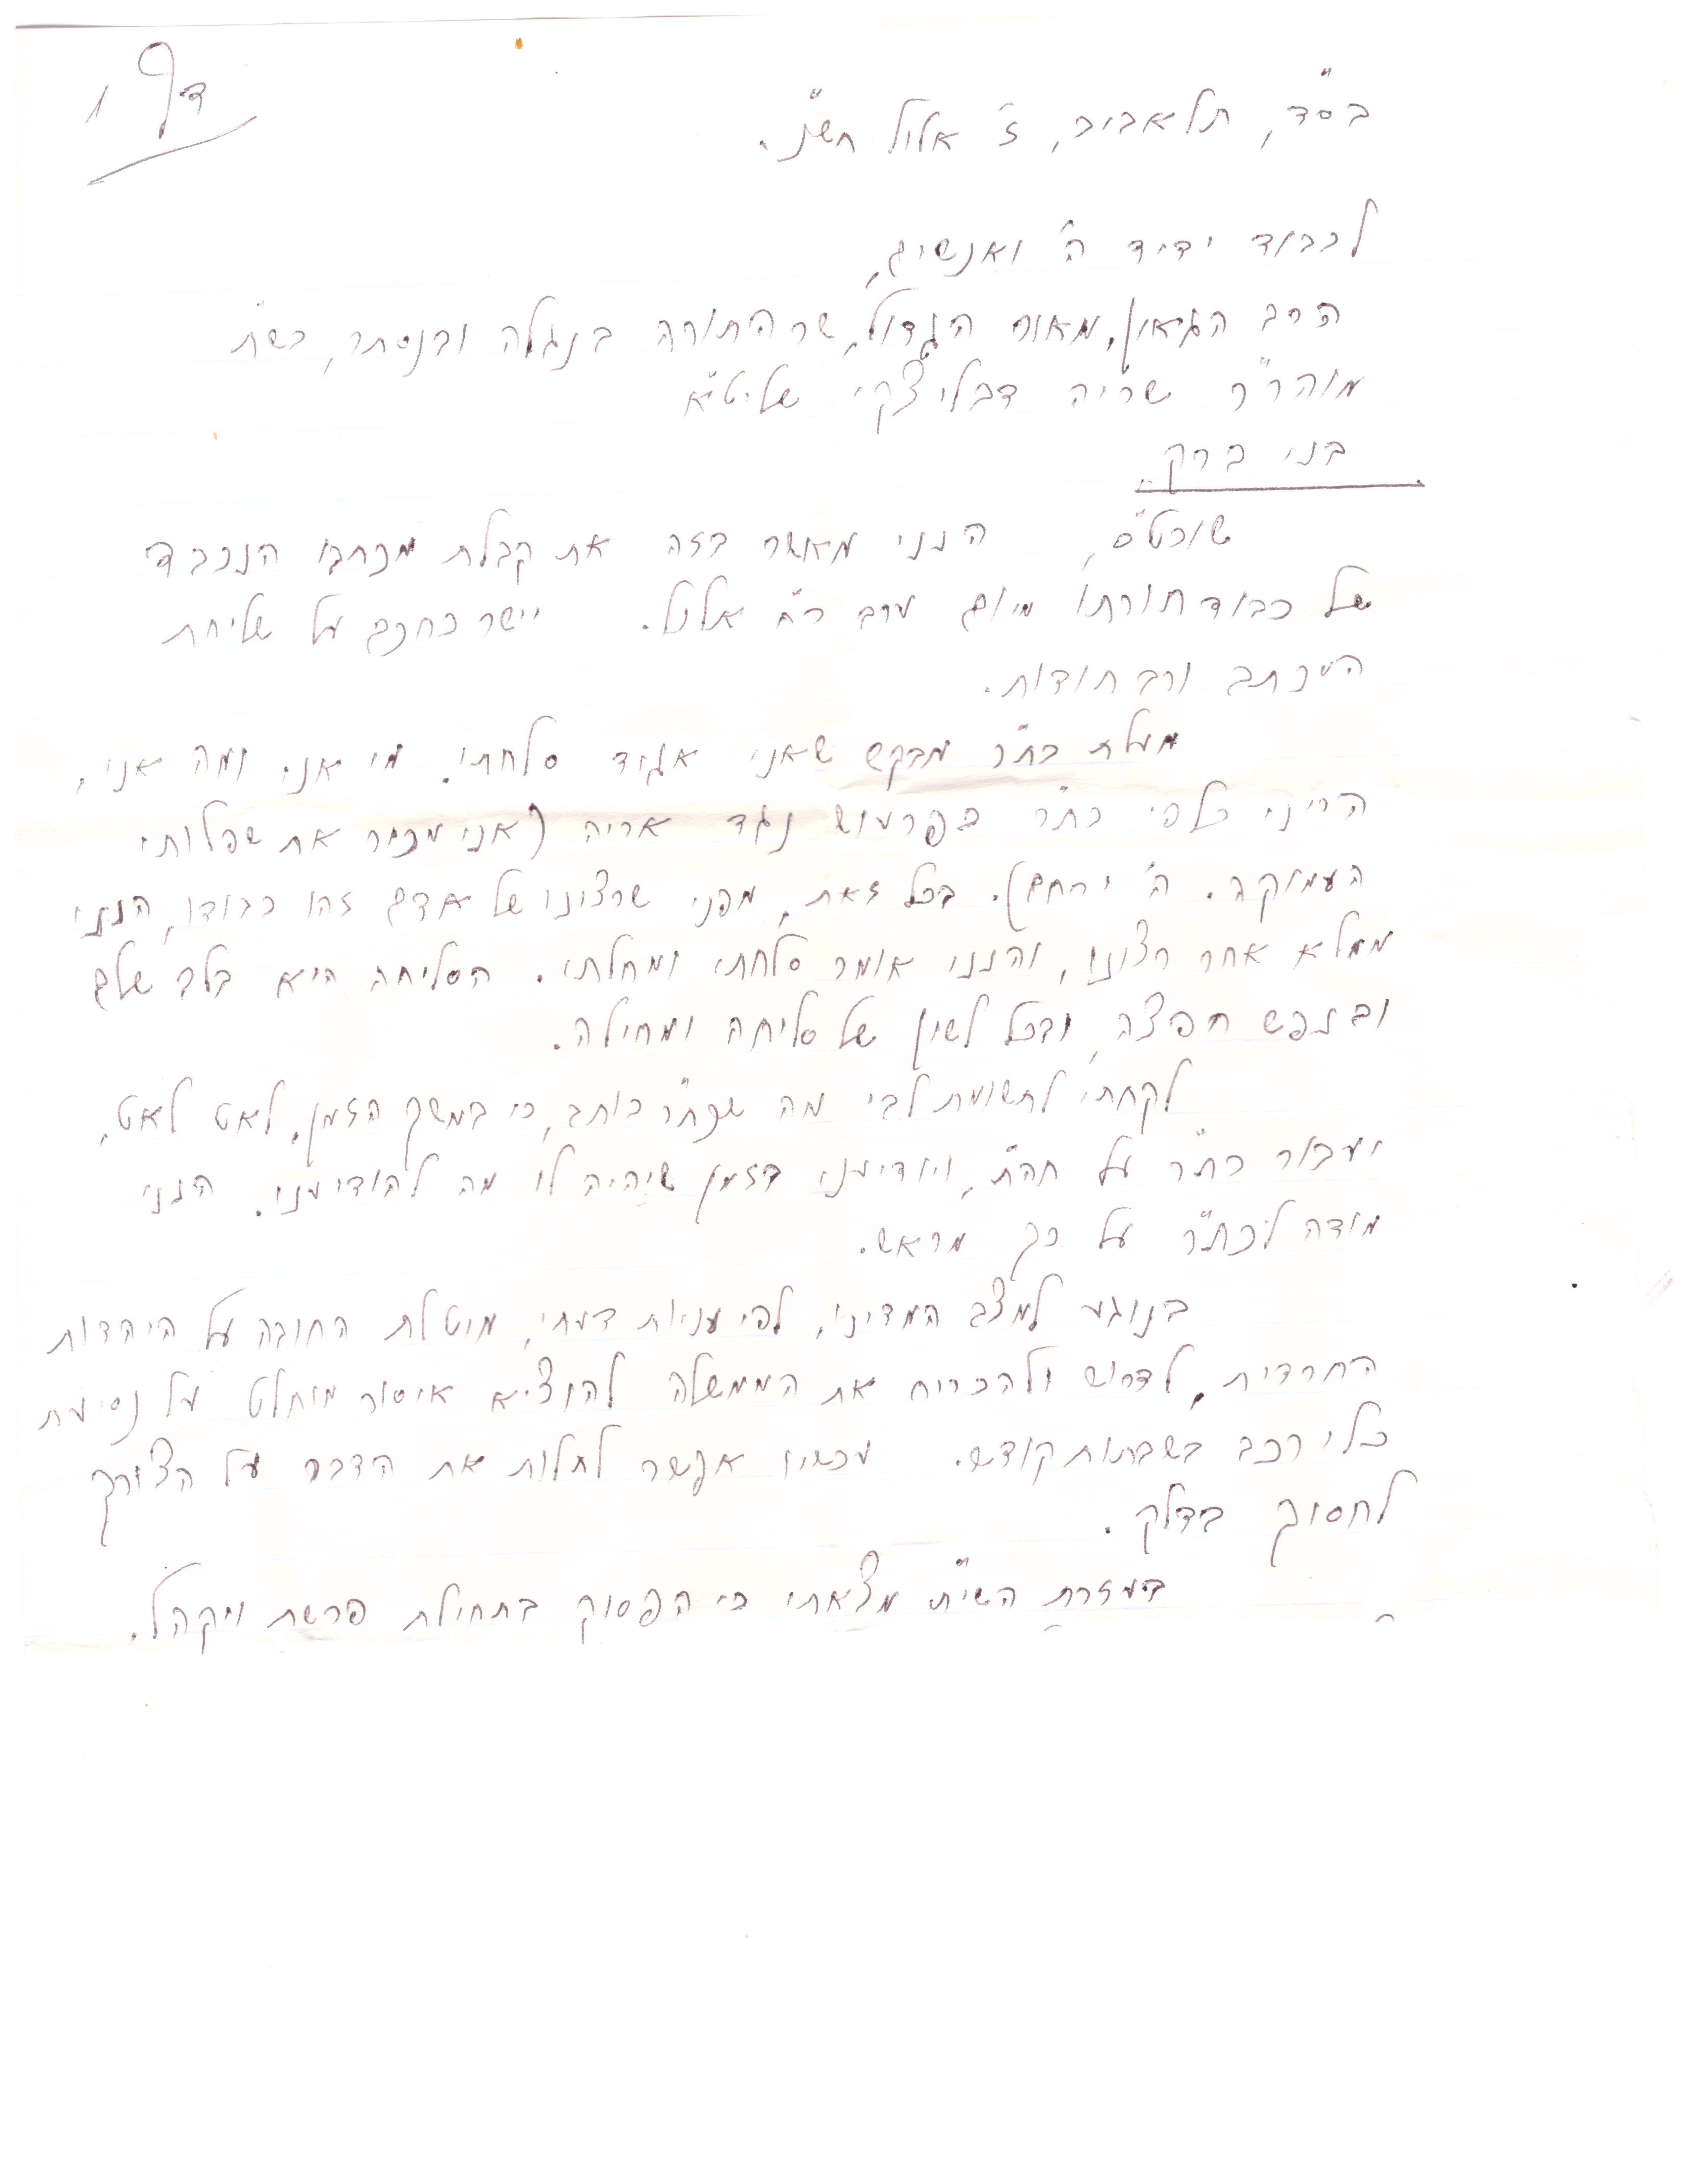 דף 1
בס"ד, תל אביב, ז' אלול תש"נ.
לכבוד ידיד ה' ואנשים,
הרב הגאון, מאור הגדול, שר התורה בנגלה ובנסתר, כש"ת
מוהר"ר שריה דבליצקי שליט"א
בני ברק.
שוכט"ס, הנני מאשר בזה את קבלת מכתבו הנכבד
של כבוד תורתו מיום ערב ר"ח אלול. יישר כחכם על שליחת
המכתב ורב תודות.
מעלת כת"ר מבקש שאני אגיד סלחתי. מי אני ומה אני,
הריני כלפי כת"ר כפרעוש נגד אריה (אני מכיר את שפלותי
העמוקה. ה' ירחם). בכל זאת, מפני שרצונו של אדם זהו כבודו, הנני
ממלא אחר רצונו, והנני אומר סלחתי ומחלתי. הסליחה היא בלב שלם
ובנפש חפצה, ובכל לשון של סליחה ומחילה.
לקחתי לתשומת לבי מה שכת"ר כותב, כי במשך הזמן, לאט לאט,
יעבור כת"ר על חה"ת, ויודיעני בזמן שיהיה לו מה להודיעני. הנני
מודה לכת"ר על כך מראש.
בנוגע למצב המדיני, לפי עניות דעתי, מוטלת החובה על היהדות
החרדית, לדרוש ולהכריח את הממשלה להוציא איסור מוחלט על נסיעת
כלי רכב בשבתות קודש. עכשיו אפשר לתלות את הדבר על הצורך
לחסוך בדלק.
בעזרת השי"ת מצאתי כי הפסוק בתחילת פרשת ויקהל.